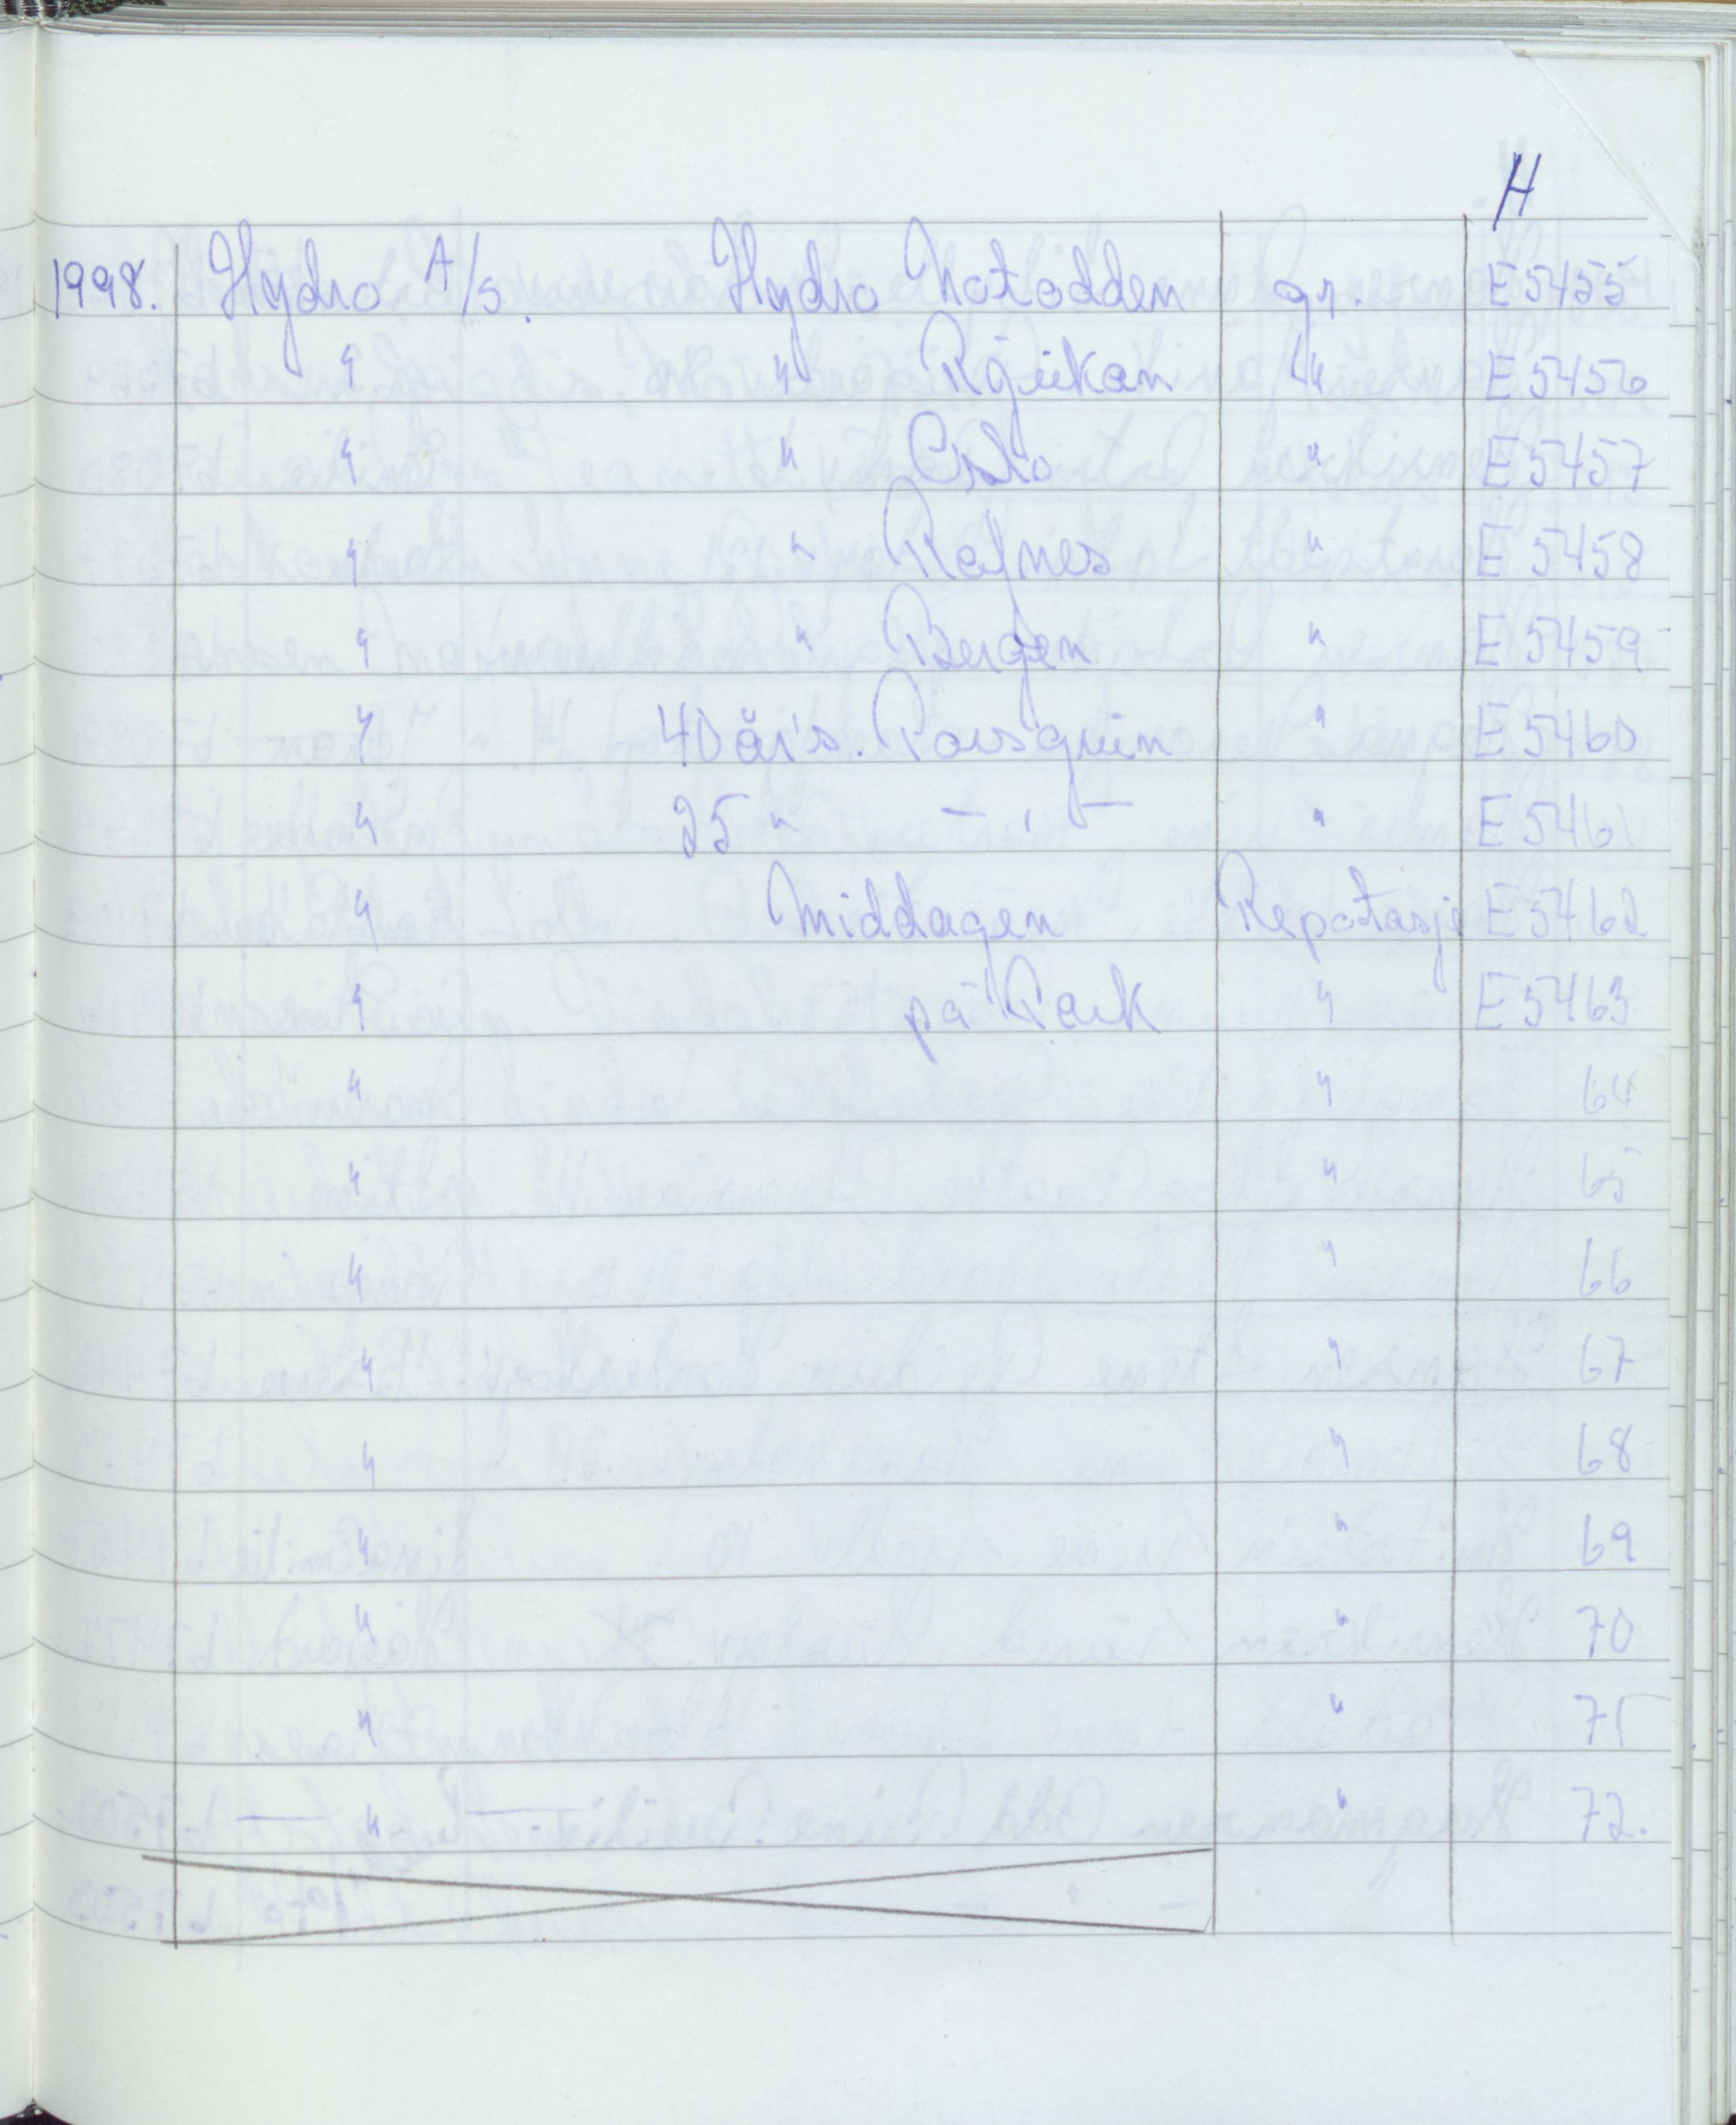 H
1998. Hydro A/s. Hydro Notodden gr. E5455
" " Rjukan " E5456
" " Oslo " E5457
" " Rafnes " E5458
" " Bergen " E5459
" 40 års. Porsgrunn " E5460
" 25 " — " — " E5461
" Middagen Repotasje E5462
" på Park " E5463
" " 64
" " 65
" " 66
" " 67
" " 68
" " 69
" " 70
" " 71
— " — " 72.